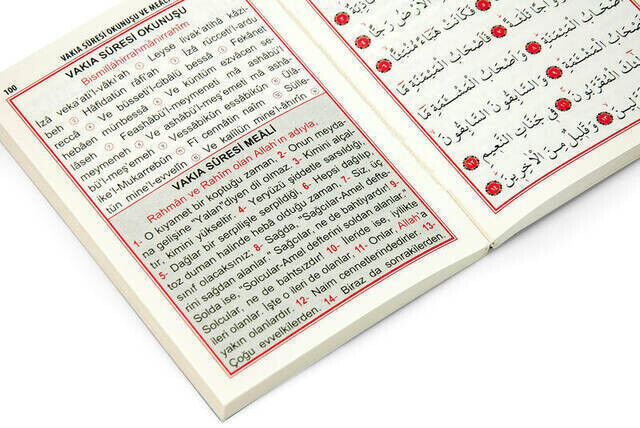 100
VAKIA SÛRESİ OKUNUŞU VE MEALİ
VAKIA SÛRESİ OKUNUŞU
Bismillâhirrahmânirrahîm
İzâ veka'ati'l-vâkı'ah Leyse livak'atihâ kâzi-
beh Hâfidatün râfi'ah İzâ rücceti'l-ardu
reccâ Ve büsseti'l-cibâlü bessâ Fekânet
hebâen münbessâ Ve küntüm ezvâcen se-
lâseh Feashâbü'l-meymeneti mâ ashâbü'l
meymeneh Ve ashâbü'l-meş'emeti mâ ashâ-
bü'l-meş'emeh Vessâbikûn essâbikûn Ülâi-
ike'l-Mukarrebûn Fî cennâtin naîm Sülle-
tün mine'l-evvelîn Ve kalîlün mine'l-âhirîn
VAKIA SÛRESİ MEALİ
Rahmân ve Rahîm olan Allah'ın adıyla.
1- O kıyamet bir koptuğu zaman, 2- Onun meyda-
na gelişine "Yalan"diyen dil olmaz. 3- Kimini alçal-
tır, kimini yükseltir. 4- Yeryüzü şiddetle sarsıldığı,
5- Dağlar bir serpilişle serpildiği, 6- Hepsi dağılıp,
toz duman halinde hebâ olduğu zaman. 7- Siz, üç
sınıf olacaksınız: 8- Sağda, "Sağcılar-Amel defte-
rini sağdan alanlar." Sağcılar, ne de bahtiyardır! 9-
Solda ise, "Solcular-Amel defterini soldan alanlar."
Solcular, ne de bahtsızdır! 10- İleride ise, iyilikte
ileri olanlar. İşte o ileri de olanlar. 11- Onlar, Allah'a
yakın olanlardır. 12- Naim cennetlerindedirler. 13-
Çoğu evvelkilerden. 14- Biraz da sonrakilerden.
وَأَصْحَابُ الْمَشْئَمَةِ مَا
أَصْحَابُ الْمَشْئَمَةِ وَالسَّابِقُونَ السَّابِقُونَ
الْمُقَرَّبُونَ فِي جَنَّاتِ النَّعِيمِ
وَقَلِيلٌ مِنَ الْاٰخِرِينَ